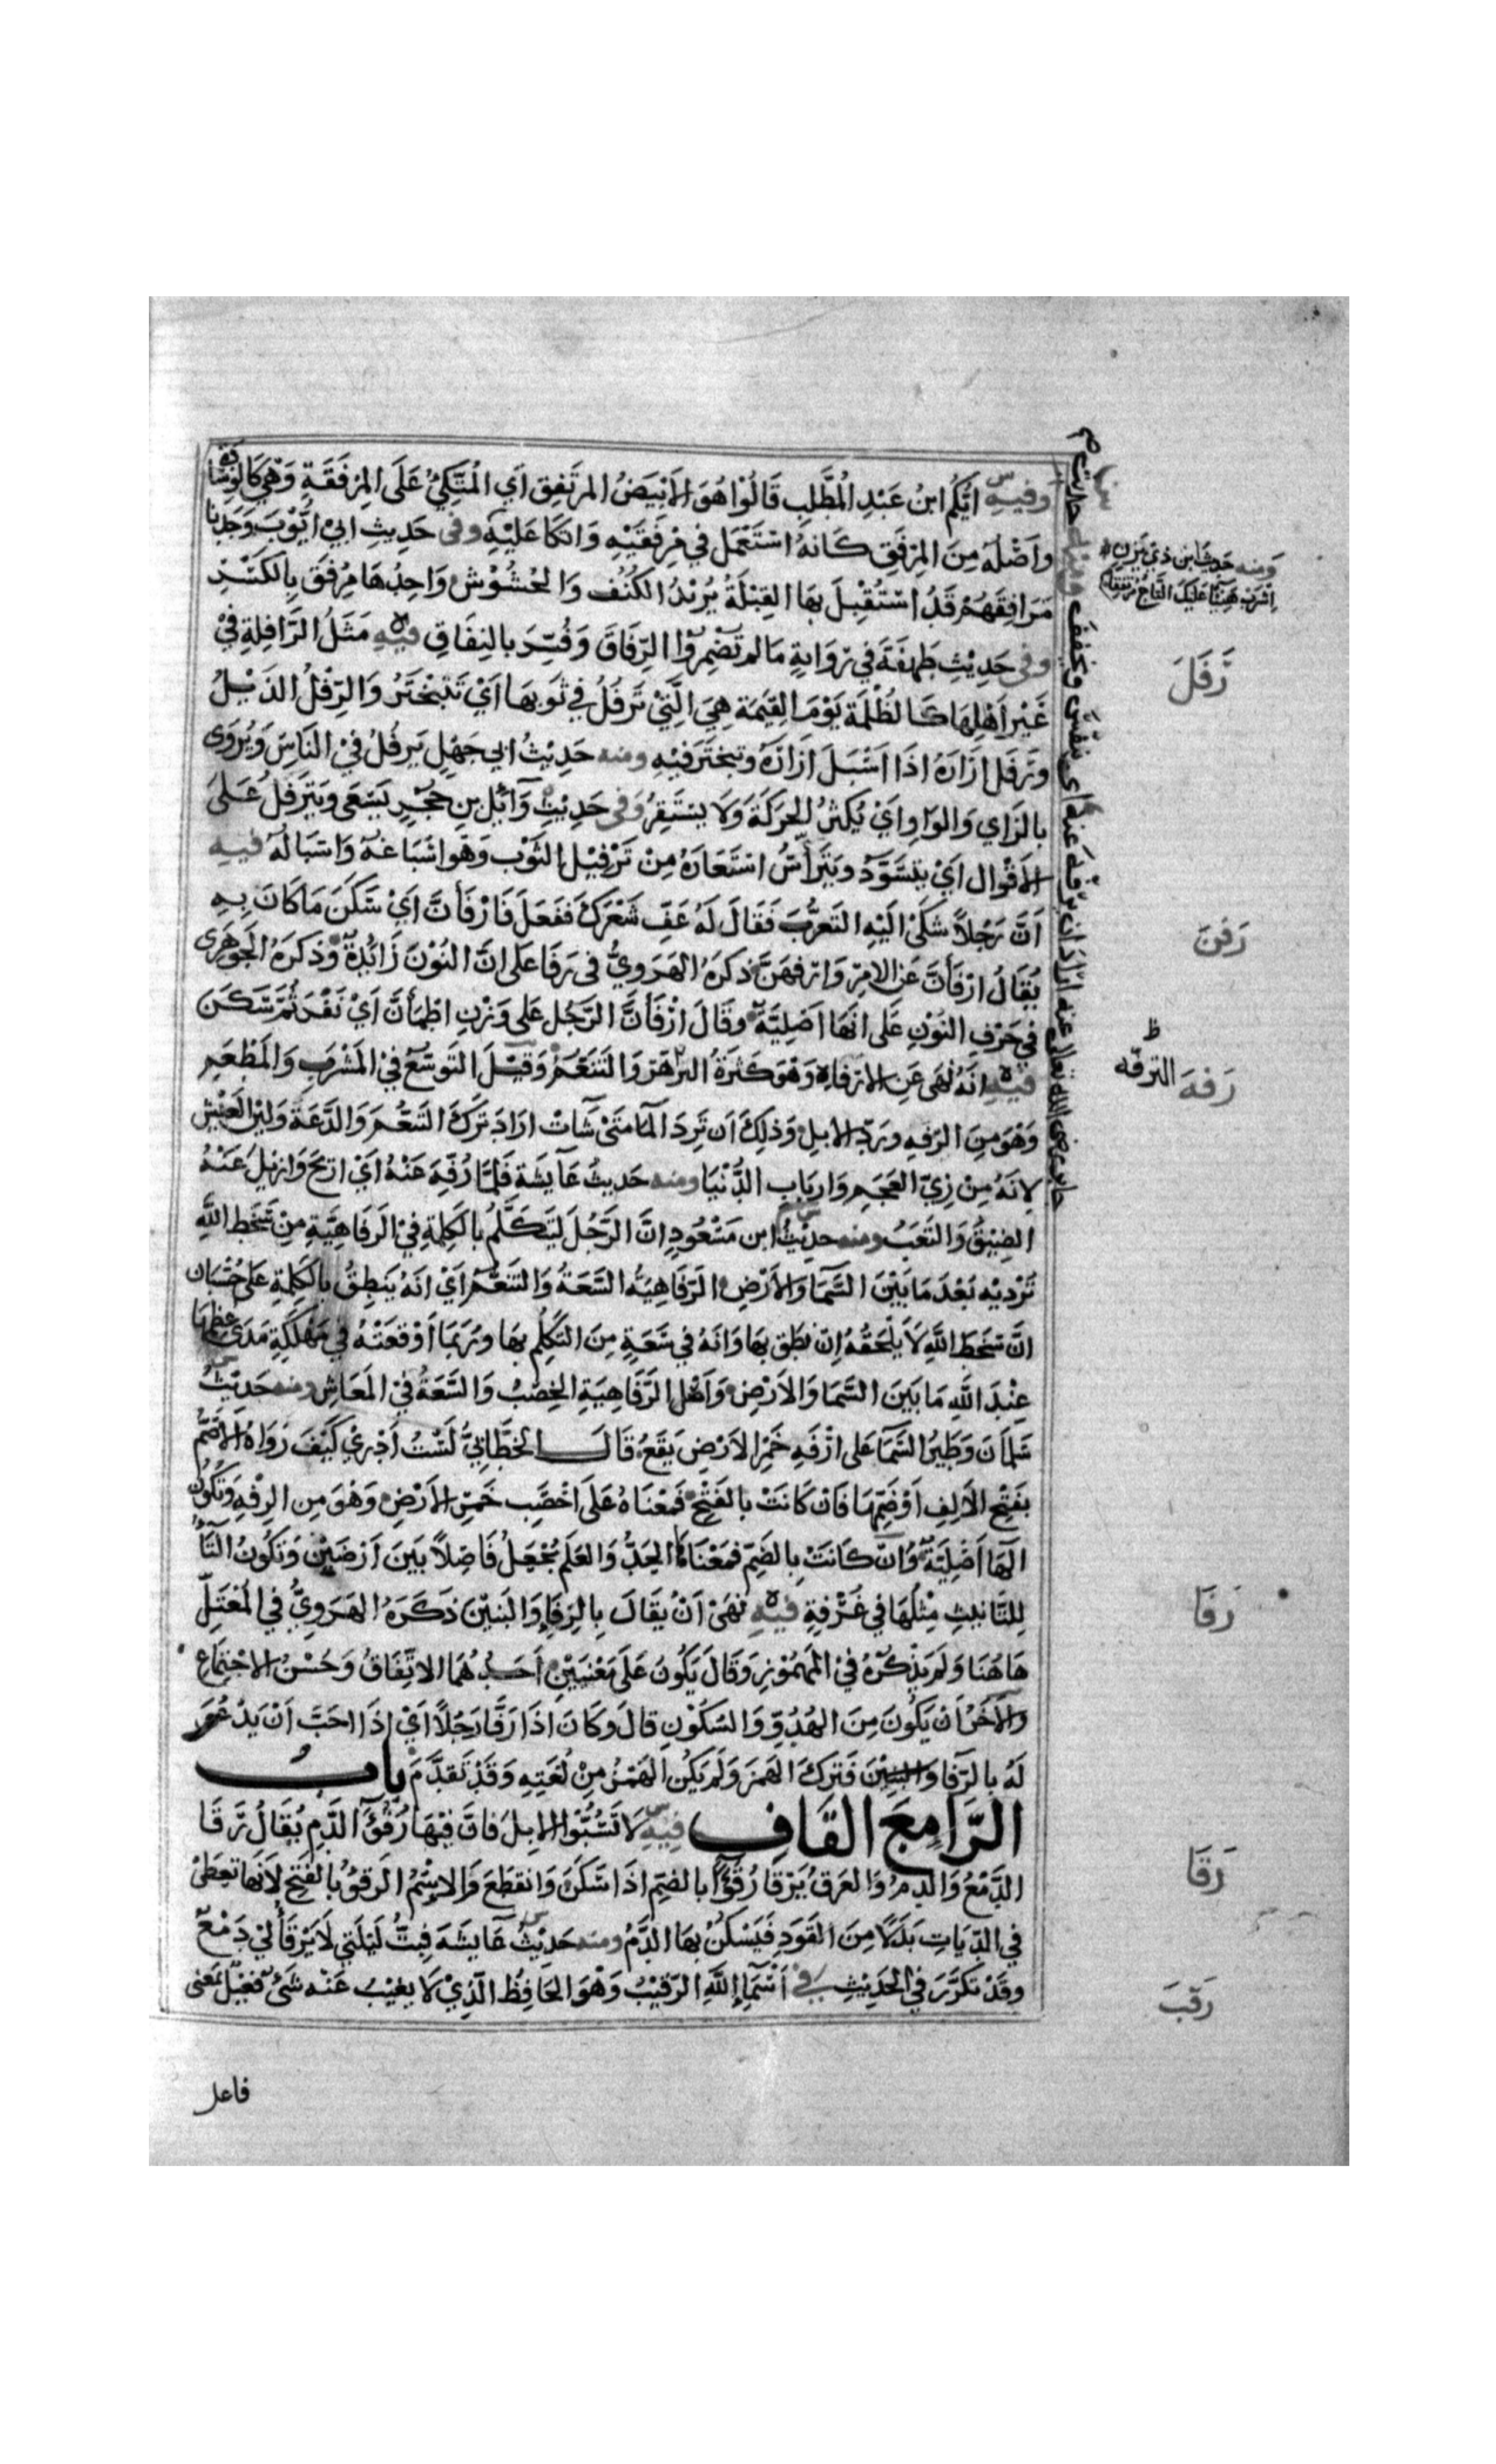 وفيه ايكم ابن عبد المطلب قالوا هو الابيض المرتفق اي المتكئ على المرفقة وهي كالوسادة
واصله من المرفق كانه استعمل في مرفقيه واتكا عليه وفى حديث ابي ايوب وجدنا
مرافقهم قد استقبل بها القبلة يريد الكنف والحشوش واحدها مرفق بالكسر
وفى حديث طهفة في رواية مالم تضمروا الرفاق وفسر بالنفاق فيه مثل الرافلة في
غير اهلها كالظلمة يوم القيمة هي التي ترفل في ثوبها اي تتبختر والرفل الذيل
وترفل ازاره اذا اسبل ازاره وتبختر فيه ومنه حديث ابي جهل يرفل في الناس ويروى
بالزاي والواو اي يكثر الحركة ولا يستقر وفى حديث وآئل بن حجر يسعى ويترفل على
الاقوال اي يتسود ويتراس استعاره من ترفيل الثوب وهو اسباغه واسباله فيه
ان رجلا شكى اليه التعزب فقال له عف شعرك ففعل فارفأن اي سكن ما كان به
يقال ارفأن عن الامر وارفهن ذكره الهروي في رفا على ان النون زائدة وذكره الجوهرى
في حرف النون على انها اصلية وقال ارفأن الرجل على وزن اطمأن اي نفر ثم سكن
فيه انه نهى عن الارفاه وهو كثرة التدهن والتنعم وقيل التوسع في المشرب والمطعم
وهو من الرفه ورد الابل وذلك ان ترد المآ متى شآت اراد ترك التنعم والدعة ولين العيش
لانه من زي العجم وارباب الدنيا ومنه حديث عآيشة فلما رفه عنه اي اريح وازيل عنه
الضيق والتعب ومنه حديث ابن مسعود ان الرجل ليتكلم بالكلمة في الرفاهية من سخط الله
ترديه بعد ما بين السمآ والارض الرفاهية السعة والتنعم اي انه ينطق بالكلمة على حسبان
ان سخط الله لا يلحقه ان نطق بها وانه في سعة من التكلم بها وربما اوقعته في مهلكة مدى عظمها
عند الله ما بين السما والارض واصل الرفاهية الخصب والسعة في المعاش ومنه حديث
سلمان وطير السمآ على ارفه خمر الارض يقع قال الخطابي لست ادري كيف رواه الاصم
بفتح الالف او ضمها فان كانت بالفتح فمعناه على اخصب خمر الارض وهو من الرفه وتكون
الهآ اصلية وان كانت بالضم فمعناه الحد والعلم يجعل فاصلا بين ارضين وتكون التآ
للتانيث مثلها في غرفة فيه نهى ان يقال بالرفاء والبنين ذكره الهروي في المعتل
هاهنا ولم يذكره في المهموز وقال يكون على معنيين احدهما الاتفاق وحسن الاجتماع
والآخر ان يكون من الهدو والسكون قال وكان اذا رفا رجلا اي اذا احب ان يدعو
له بالرفا والبنين فترك الهمز ولم يكن الهمز من لغته وقد تقدم باب
الرا مع القاف فيه لا تسبوا الابل فان فيها رقوء الدم يقال رقا
الدمع والدم والعرق يرقا رقوءا بالضم اذا سكن وانقطع والاسم الرقوء بالفتح لانها تعطى
في الديات بدلا من القود فيسكن بها الدم ومنه حديث عآيشه فبت ليلتي لا يرقأ لي دمع
وقد تكرر في الحديث في اسماء الله الرقيب وهو الحافظ الذي لا يغيب عنه شئ فعيل بمعنى
فاعل
ومنه حديث ابن ذي يزن
اشرب هنيئا عليك التاج مرتفقا
رفل
رفن
ظ
رفه الترفه
رفا
رقا
رقب